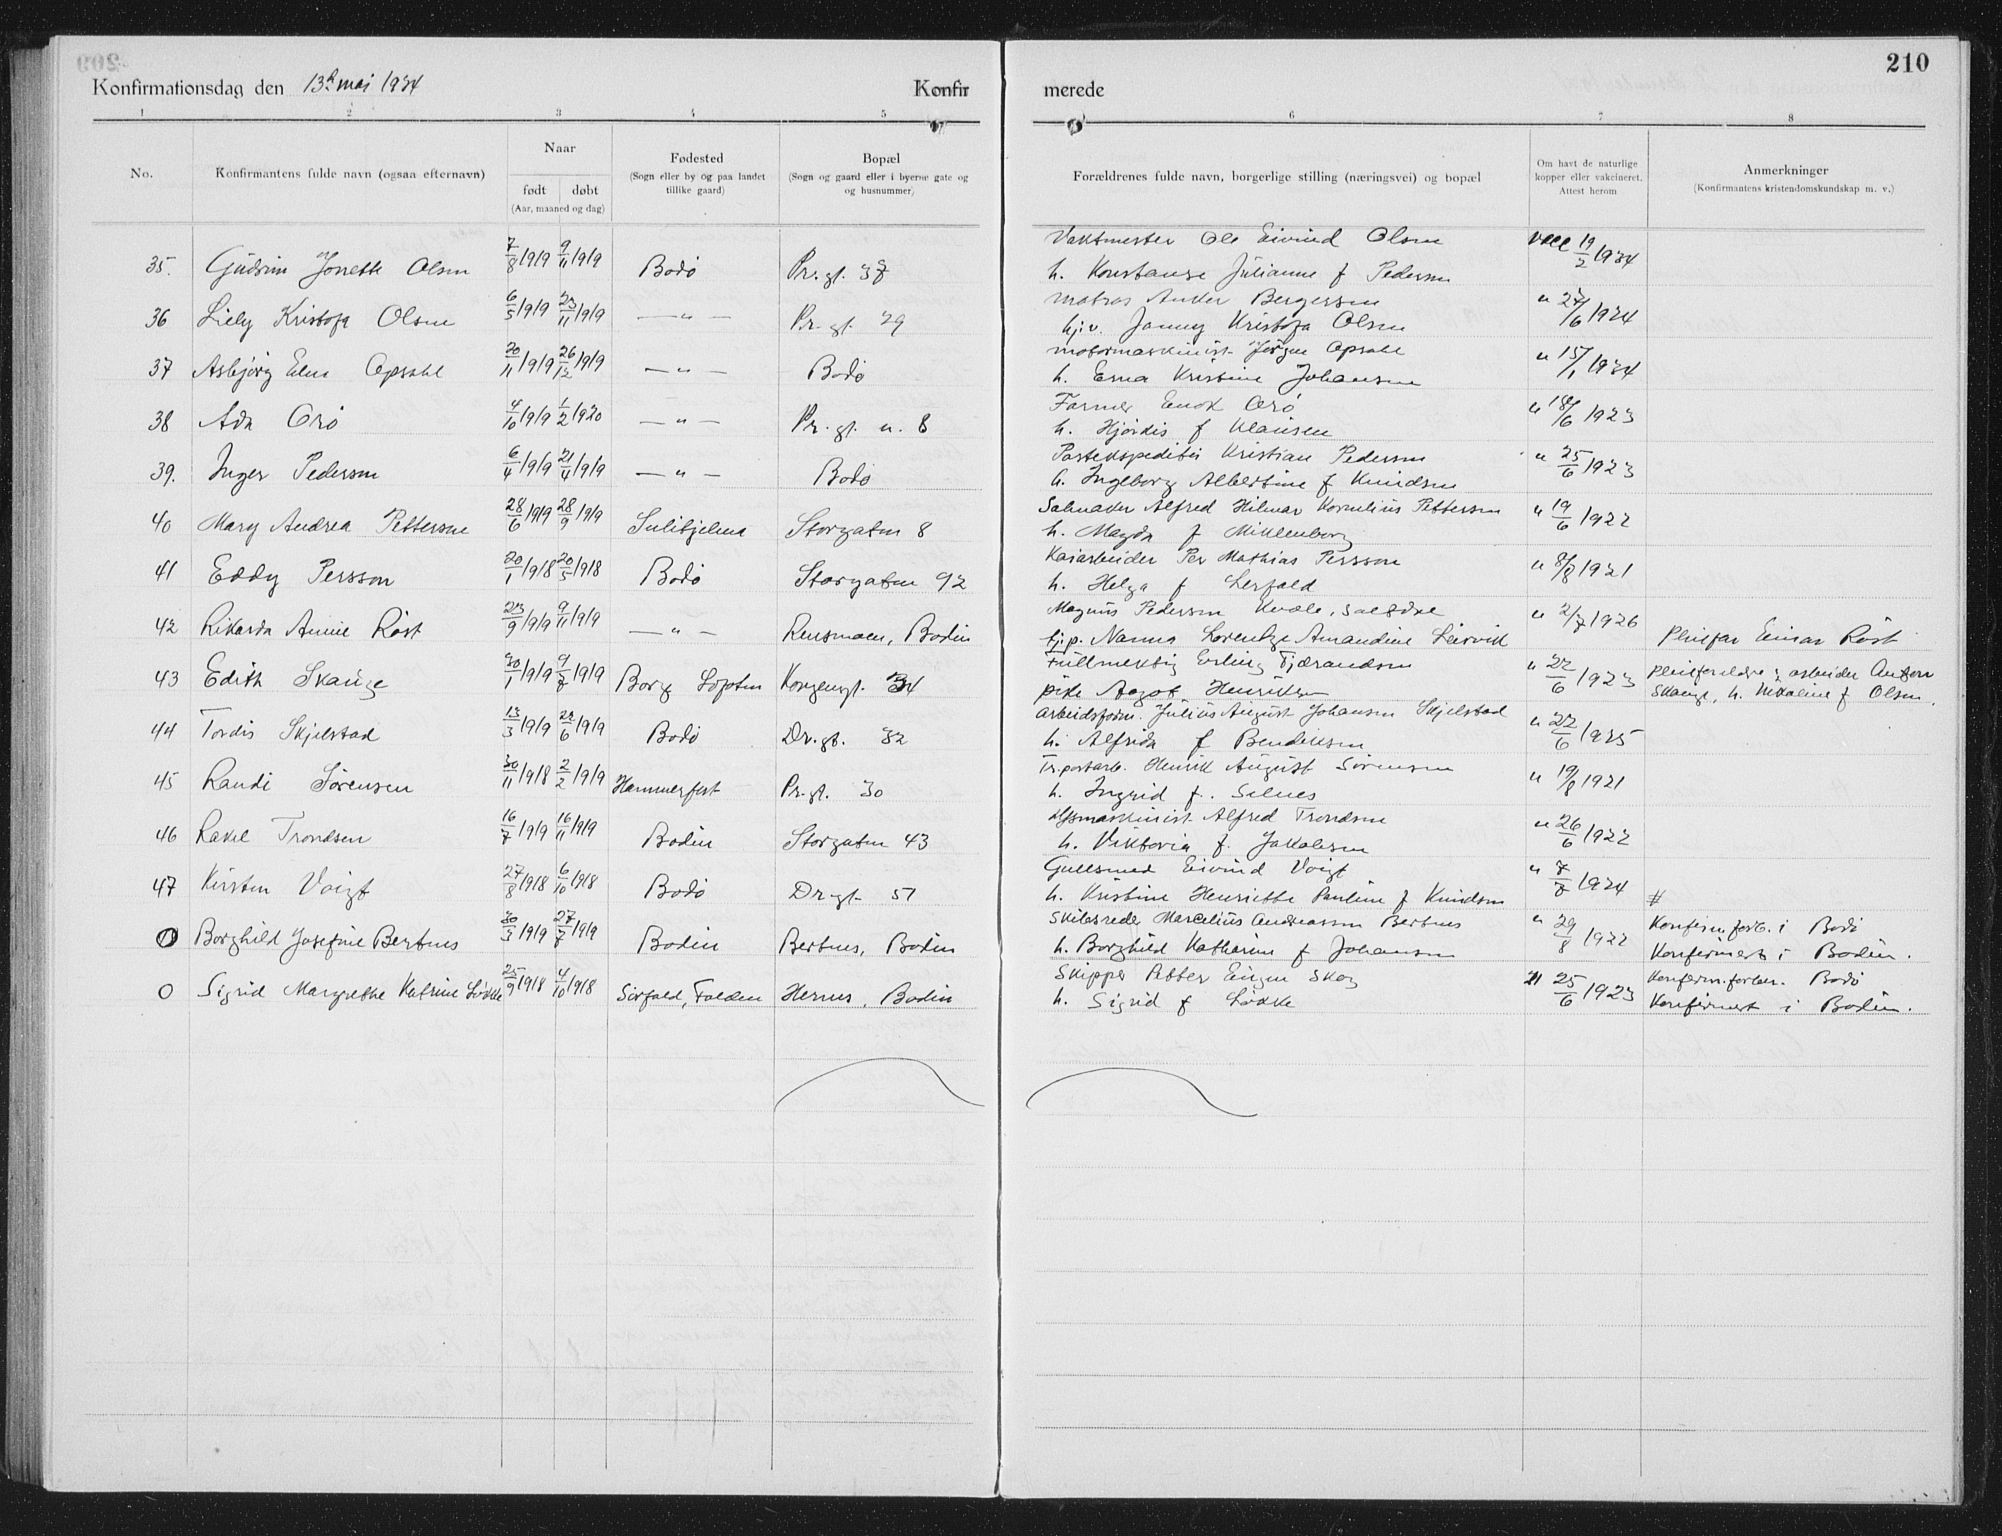 210
Konfirmationsdag den 13de mai 1934 Konfir merede
1 2 3 4 5 6 7 8
No. Konfirmantens fulde navn (ogsaa efternavn) Naar født døbt (Aar, maaned og dag) Fødested (Sogn eller by og paa landet tillike gaard) Bopæl (Sogn og gaard eller i byerne gate og og husnummer) Forældrenes fulde navn, borgerlige stilling (næringsvei) og bopæl Om havt de naturlige kopper eller vakcineret. Attest herom Anmerkninger (Konfirmantens kristendomskundskap m. v.)
Vaktmester Ole Eivind Olsen
35. Gudrun Jonette Olsen 7/8 1919 9/11 1919 Bodø Pr.gt. 37 h. Konstanse Julianne f Pedersen vacc 19/2 1934
matros Anker Bergersen
36 Liely Kristofa Olsen 6/5 1919 23/11 1919 — " — Pr. gt. 29 hj.v. Janny Kristofa Olsen " 27/6 1924
motormaskinist Jørgen Opsahl
37 Asbjørg Elna Opsahl 20/11 1919 26/12 1919 — " — Bodø h. Erna Kristine Johansen " 15/1 1934
Farmer Enok Orø
38 Ada Orø 4/10 1919 1/2 1920 — " — Pr. gt. n. 8 h. Hjørdis f Klausen " 18/6 1923
Postekspeditør Kristian Pedersen
39. Inger Pedersen 6/4 1919 21/4 1919 — " — Bodø h. Ingeborg Albertine f Knudsen " 25/6 1923
Salmaker Alfred Hilmar Kornelius Pettersen
40 Mary Andrea Pettersen 28/6 1919 28/9 1919 Sulitjelma Storgaten 8 h. Magda f Miklenborg " 19/6 1922
Kaiarbeider Per Mathias Persson
41 Eddy Persson 20/1 1918 20/5 1918 Bodø Storgaten 92 h. Helga f Lerfald " 8/8 1921
Magnus Pedersen Kvale, Saltdal
42 Rikarda Annie Røst 23/9 1919 9/11 1919 — " — Rensmoen, Bodin tj.p. Nanna Lorentze Amandine Leirvik " 2/7 1926 Pleiefar Einar Røst
Fullmektig Erling Tjærandsen
43 Edith Skauge 30/1 1919 9/7 1919 Borg Lofoten Kongensgt. 34 pike Aagot Henriksen " 22/6 1923 Pleieforeldre: arbeider Anton Skauge, h. Nikoline f Olsen.
Arbeidsform. Julius August Johansen Skjelstad
44 Tordis Skjelstad 13/3 1919 22/6 1919 Bodø Dr.gt. 32 h. Alfrida f Bendiksen " 22/6 1925
Tr.portarb. Henrik August Sørensen
45 Randi Sørensen 30/11 1918 2/2 1919 Hammerfest Pr.gt. 30 h. Ingrid f. Selnes " 19/8 1921
maskinist Alfred Trondsen
46 Rakel Trondsen 16/7 1919 16/11 1919 Bodin Storgaten 43 h. Viktoria f. Jakobsen " 26/6 1922
Gullsmed Eivind Voigt
47 Kirsten Voigt 27/8 1918 6/10 1918 Bodø Dr.gt. 51 h. Kristine Henriette Pauline f Knudsen " 7/7 1924 #
Skibsreder Marcelius Andreassen Bertnes
0 Borghild Josefine Bertnes 30/3 1919 27/7 1919 Bodin Bertnes, Bodin h. Borghild Katharine f Johansen " 29/8 1922 Konfirm.forb. i Bodø Konfirmert i Bodin.
Skipper Petter Eugen Skog
0 Sigrid Margrethe Katrine Løkke 25/9 1918 4/10 1918 Sørfold, Folden Hernes, Bodin h. Sigrid f Løkke " 25/6 1923 Konfirm.forber. Bodø Konfirmert i Bodin.